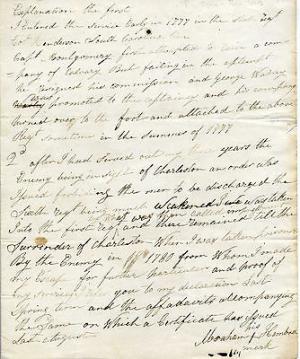 Explanation the first
I entered the service Early in 1777 in the sixth Regt
Col Henderson South Carolina line
Capt Montgomery first attempted to raise a com-
pany of Calvary But failing in the attempt
he resigned his commission and George Wa
promoted to the captaincy and his company
turned over to the foot and attached to the above
Regt sometime in the summer of 1777
2d after I had served out my years the
Enemy being in sight of Charleston an order was
Issued forbiding the men to be discharged the
Sixth Regt being much weakened was taken
into the first Regt and there remained till the
Surrender of Charleston When I was taken prisoner
By the Enemy in 1780 from Whom I made
my Escape for further particulars and proof of
my services you to my declaration last
Spring term and the affadavits accompanying
the Same on Which a Certificate has issued
Last August
Abraham
his
mark